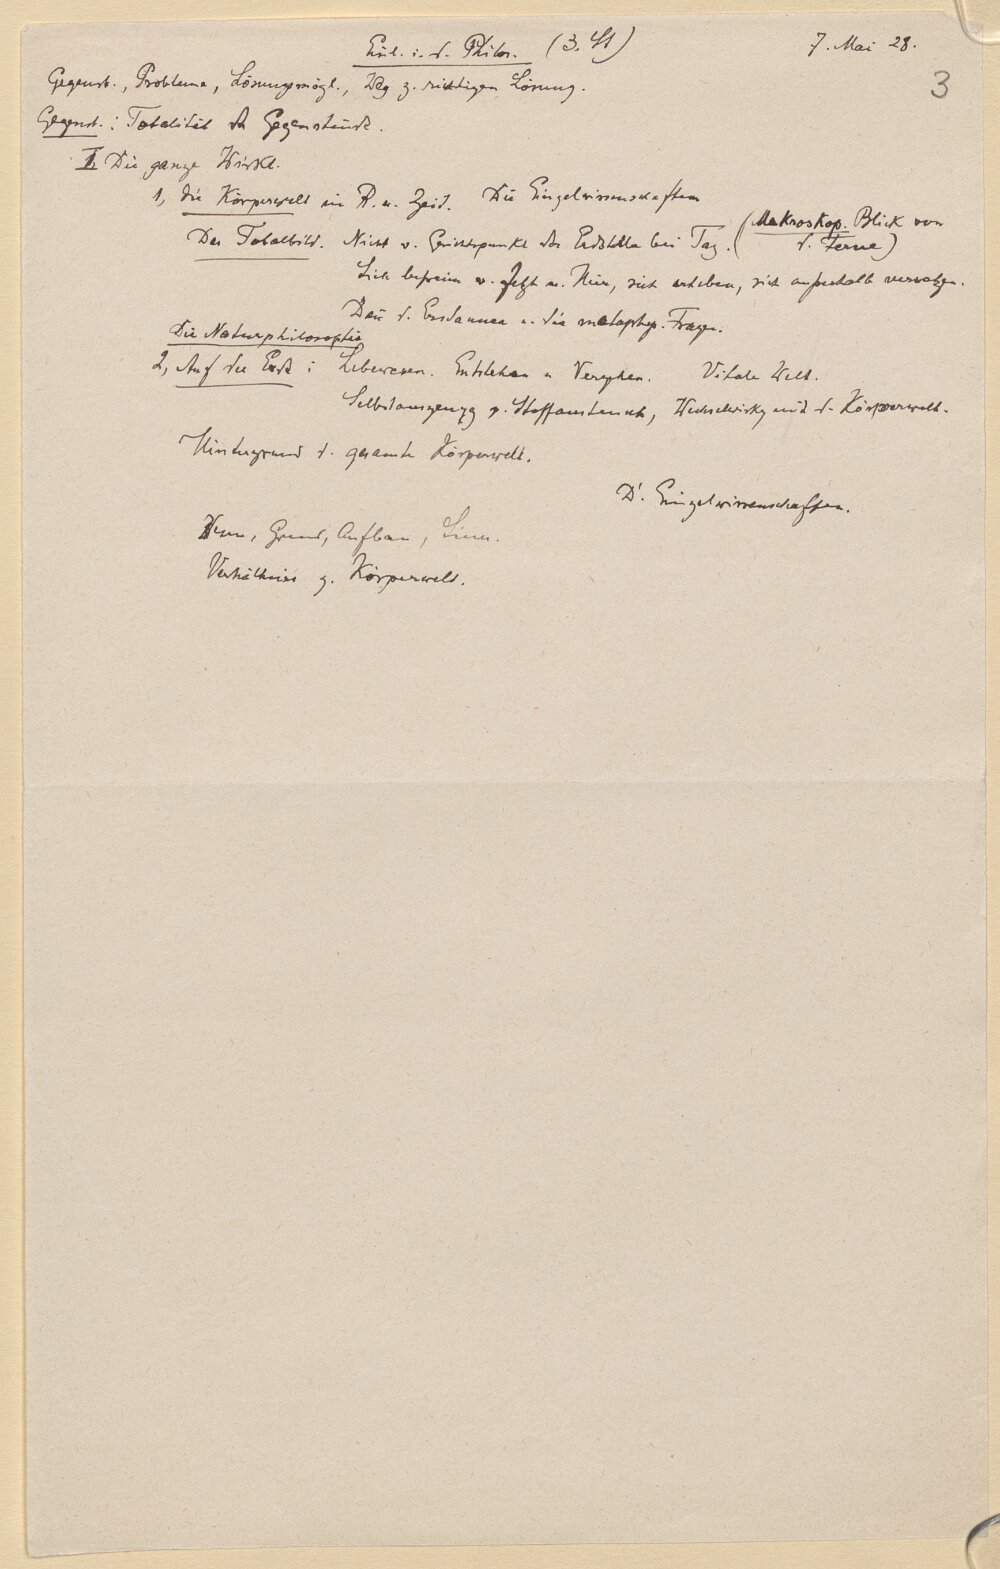 Einl. i. d. Philos. (3. St) 7. Mai 28.
3
Gegenst., Probleme, Lösungsmögl., Weg z. richtigen Lösung.
Gegenst.: Totalität der Gegenstände.
I. Die ganze Wirkl.
1, die Körperwelt in R. u. Zeit. Die Einzelwissenschaften
Das Totalbild. Nicht v. Gesichtspunkt der Erdstelle bei Tag. (Makroskop. Blick von d. Ferne)
Sich befreien v. Jetzt u. Hier, sich erheben, sich außerhalb versetzen.
Dann d. Erstaunen u. die metaphys. Fragen.
Die Naturphilosophie
2, Auf der Erde: Lebewesen. Entstehen u Vergehen. Vitale Welt.
Selbstauszeugg u. Stoffaustausch, Wechselwirkg mit d. Körperwelt.
Hintergrund d. gesamte Körperwelt.
D. Einzelwissenschaften.
Wesen, Grund, Aufbau, Sinn.
Verhältniss z. Körperwelt.